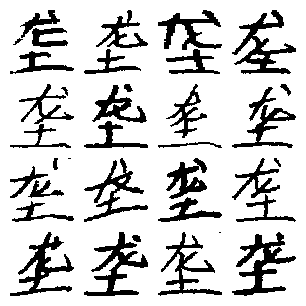 垄垄垄垄
垄垄垄垄
垄垄垄垄
垄垄垄垄